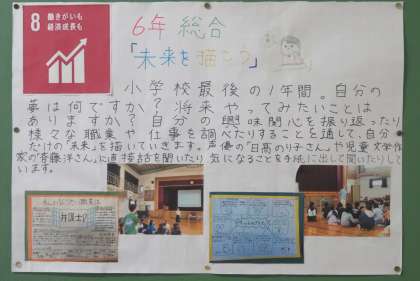 8 働きがいも
経済成長も
6年 総合
「未来を描こう」
小学校最後の1年間。自分の
夢は何ですか?将来やってみたいことは
ありますか?自分の興味関心を振り返ったり
様々な職業や仕事を調べたりすることを通して、自分
だけの「未来」を描いていきます。声優の「日髙のり子さん」や児童文学作
家の「斉藤洋さん」に直接話を聞いたり気になることを手紙に出して聞いたりして
います。
弁護士